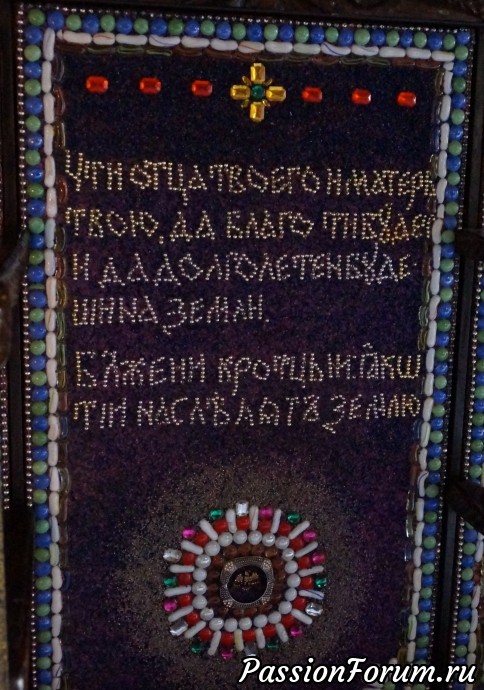 ЧТИ ОТЦА ТВОЕГО И МАТЕРЬ
ТВОЮ, ДА БЛАГО ТИ БУДЕТ
И ДА ДОЛГОЛЕТЕН БУДЕ
ШИ НА ЗЕМЛИ.
БЛЖЕНИ КРОТЦЫИ: ꙖКѠ
ТІИ НАСЛѢДѦТЪ ЗЕМЛЮ
PassionForum.ru